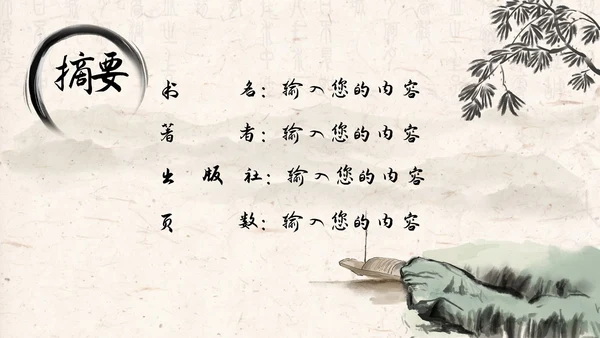 摘要
书 名：输入您的内容
著 者：输入您的内容
出 版 社：输入您的内容
页 数：输入您的内容